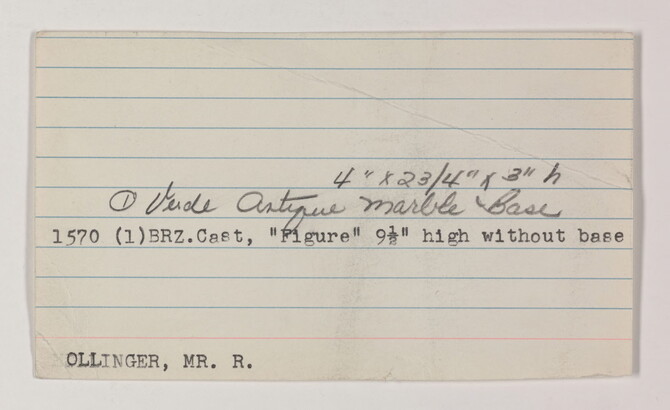 4" x 2 3/4" x 3" h
① Verde Antique Marble Base
1570 (1)BRZ.Cast, "Figure" 9½" high without base
OLLINGER, MR. R.